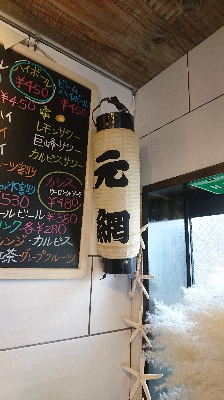 ハイボール
¥450
ビーム
ハイボール
¥450
¥450
レモンサワー
巨峰サワー
カルピスサワー
カシス
¥480
530
ールビール ¥380
リンク 各¥280
ンジ・カルピス
茶・グレープフルーツ
元網